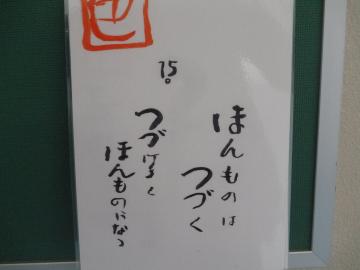 ほんものは
つづく
つづけると
ほんものになる
15。